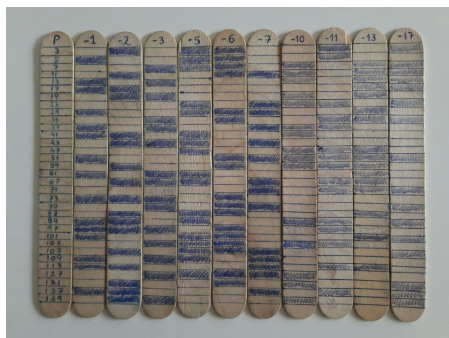 P -1 -2 -3 -5 -6 -7 -10 -11 -13 -17
3
5
7
11
13
17
19
23
29
31
37
41
43
47
53
59
61
67
71
73
79
83
89
97
101
103
107
109
113
127
131
137
139